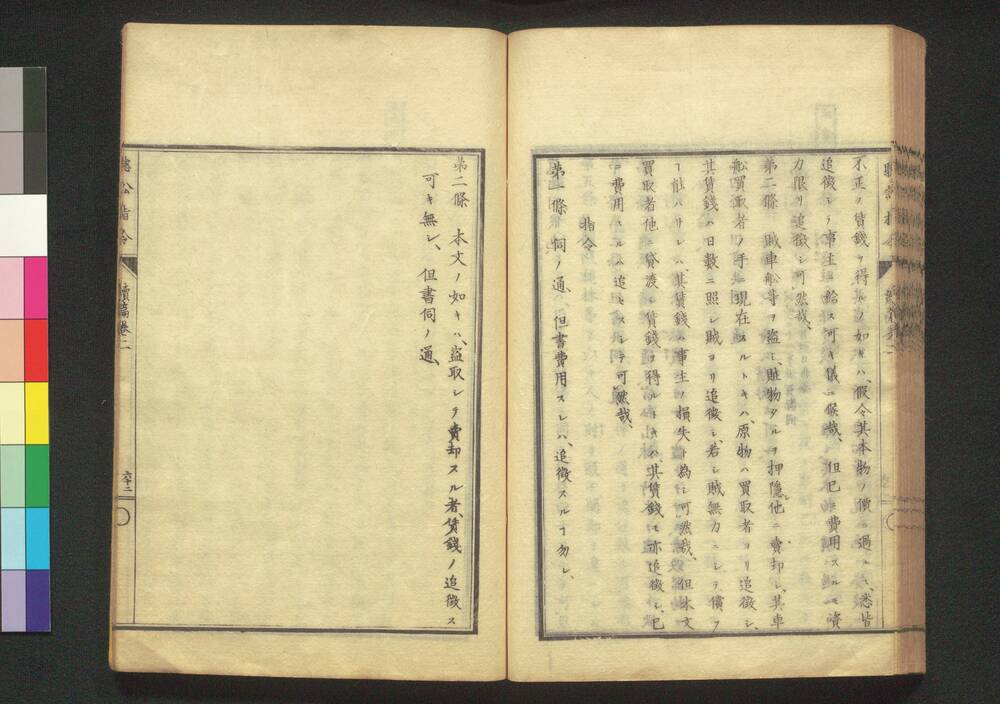 不正ノ賃錢ヲ得ルノ如キハ、假令其本物ノ價ニ過ルモ、悉皆
追徴シテ事主ニ給ス可キ儀ニ候哉、但已ニ費用スルモ、資
力限リ追徴シ可然哉、
第二條 賊車舩等ヲ盗ミ、賍物タルヲ押隠他ニ賣却シ、其車
舩買取者ノ手ニ現在スルトキハ、原物ハ買取者ヨリ追徴シ、
其賃錢ハ日數ニ照シ賊ヨリ追徴シ、若シ賊無力ニシテ償フ
ヿ能ハサレハ、其賃錢ハ事主ノ損失ト為シ可然哉、但本文
買取者他ニ貸渡シ賃錢ヲ得ルトキハ、其賃錢モ亦追徴シ、已
ニ費用スルハ追セスシテ可然哉、
指令
第一條 伺ノ通、但書費用スレハ、追徴スルヿ勿レ、
第二條 本文ノ如キハ、盗取シテ賣却スル者、賃錢ノ追徴ス
可キ無シ、但書伺ノ通、
指令
續篇卷二
六十三